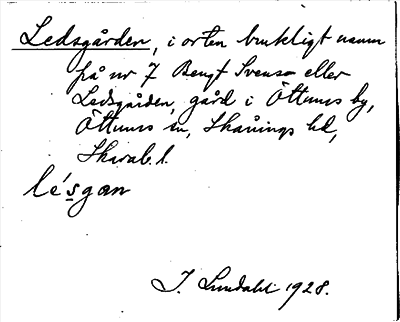 Ledsgården, i orten brukligt namn
på nr 7 Bengt Svens eller
Ledsgården, gård i Öttums by,
Öttums sn, Skånings hd,
Skarab. l.
lé'sgan
I. Lundahl 1928.